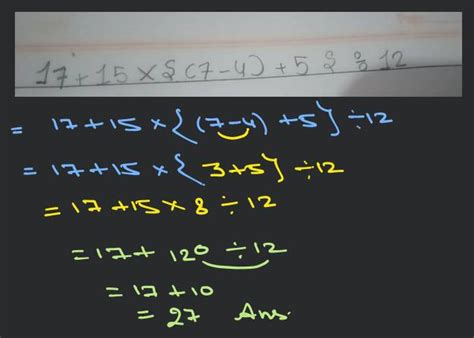 17+15×{(7-4)+5}÷12
= 17+15×{(7-4)+5}÷12
= 17+15×{3+5}÷12
= 17+15×8÷12
= 17+120÷12
= 17+10
= 27 Ans.